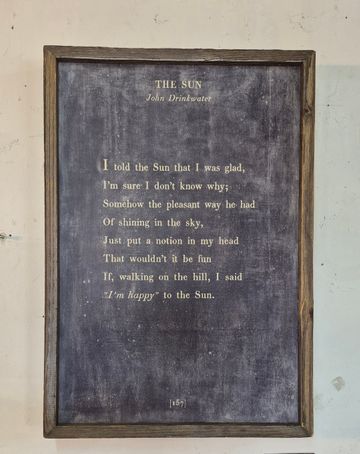 THE SUN
John Drinkwater
I told the Sun that I was glad,
I'm sure I don't know why;
Somehow the pleasant way he had
Of shining in the sky,
Just put a notion in my head
That wouldn't it be fun
If, walking on the hill, I said
"I'm happy" to the Sun.
[157]